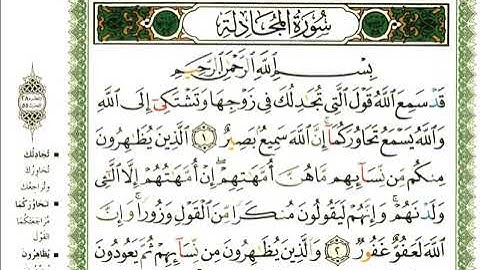 سُورَةُ المُجَادلَة
بِسْمِ ٱللَّهِ ٱلرَّحْمَٰنِ ٱلرَّحِيمِ
قَدْ سَمِعَ ٱللَّهُ قَوْلَ ٱلَّتِى تُجَٰدِلُكَ فِى زَوْجِهَا وَتَشْتَكِىٓ إِلَى ٱللَّهِ
وَٱللَّهُ يَسْمَعُ تَحَاوُرَكُمَآ إِنَّ ٱللَّهَ سَمِيعٌۢ بَصِيرٌ ١ ٱلَّذِينَ يُظَٰهِرُونَ
مِنكُم مِّن نِّسَآئِهِم مَّا هُنَّ أُمَّهَٰتِهِمْ ۖ إِنْ أُمَّهَٰتُهُمْ إِلَّا ٱلَّٰٓـِٔى
وَلَدْنَهُمْ ۚ وَإِنَّهُمْ لَيَقُولُونَ مُنكَرًا مِّنَ ٱلْقَوْلِ وَزُورًا ۚ وَإِنَّ
ٱللَّهَ لَعَفُوٌّ غَفُورٌ ٢ وَٱلَّذِينَ يُظَٰهِرُونَ مِن نِّسَآئِهِمْ ثُمَّ يَعُودُونَ
تجادلك
تحاورك
وتراجعك
تحاوركما
مراجعتكما
القول
يظاهرون